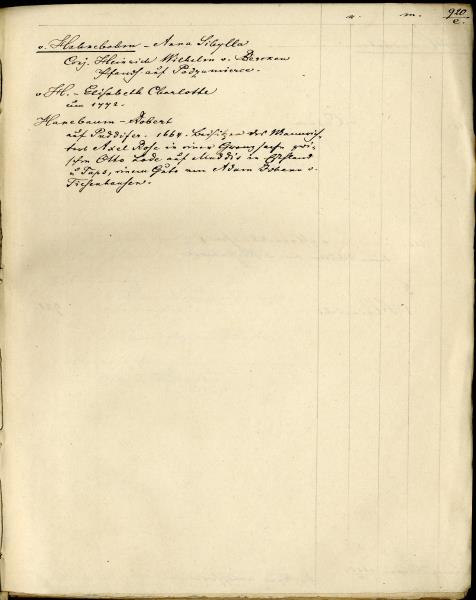 a. m. 920
c.
v. Hahnebohm - Anna Sibylla
Conj. Heinrich Wilhelm v. Berken
Pfandh. auf Podzumierce.
v H. - Elisabeth Charlotte
um 1772.
Hanebaum - Robert
auf Puddifer. 1664. Beisitzer des Mannrich-
ters Axel Rose in einer Grenzsache zwi-
schen Otto Lode auf Muddis in Ehstland
u Taps, einem Gute von Adam Johann v.
Tiesenhausen.